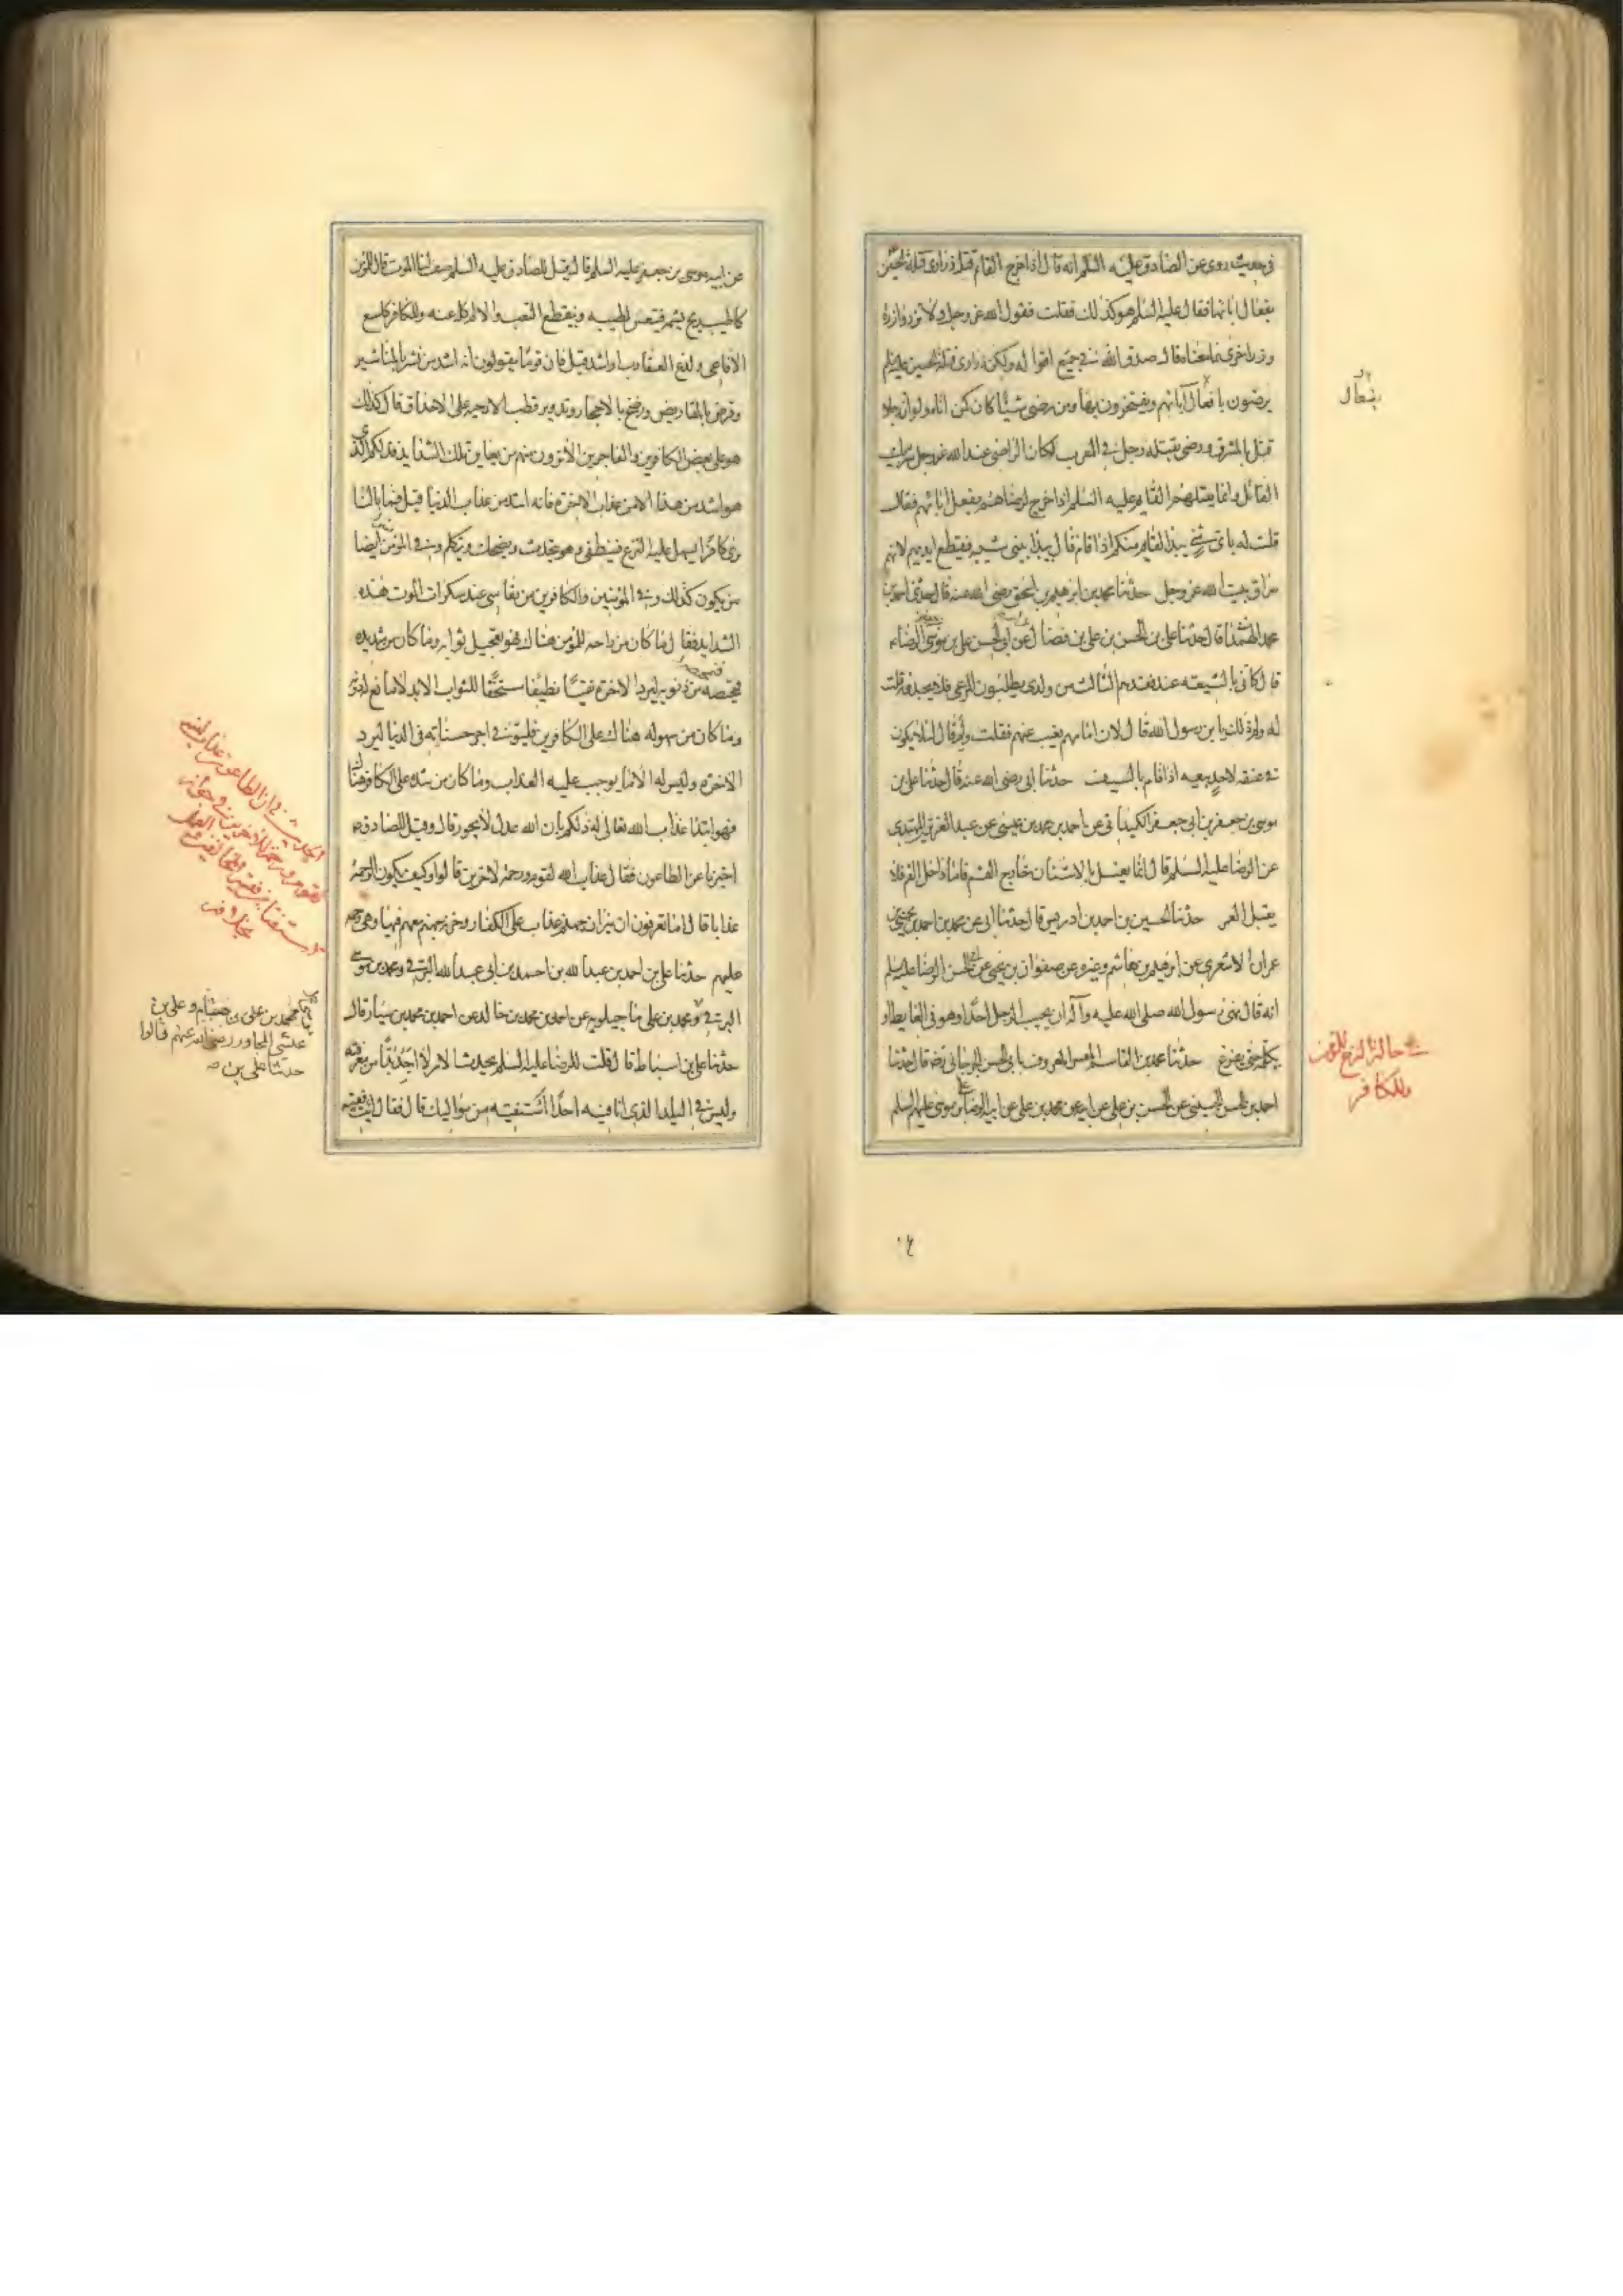 في حديث روى عن الصادق عليه السلم انه قال اذا خرج القائم قتل ذرارى قتلة الحسين
بفعال ابائها فقال عليه السلم هو كذلك فقلت فقول الله عز وجل ولا تزر وازرة
وزر اخرى ما معناه قال صدق الله في جميع اقواله ولكن ذرارى قتلة الحسين عليه السلم
يرضون بافعال آبائهم ويفتخرون بها ومن رضى شيئا كان كمن اتاه ولو ان رجلا
قتل بالمشرق ورضى بقتله رجل في المغرب لكان الراضى عند الله عز وجل شريك
القاتل وانما يقتلهم القايم عليه السلم اذا خرج لرضاهم بفعل ابائهم فقال
قلت له باى شيء يبدا القايم منكم اذا قام قال يبدا ببنى شيبه فيقطع ايديهم لانهم
سراق بيت الله عز وجل حدثنا محمد بن ابرهيم بن اسحق رضى الله عنه قال حدثنى احمد بن
محمد الهمدانى قال حدثنا على بن الحسن بن على بن فضال عن ابى الحسن على بن موسى الرضا ع
قال كانى بالشيعه عند فقدهم الثالث من ولدى يطلبون المرعى فلا يجدونه قلت
له ولم ذلك يا بن رسول الله قال لان امامهم يغيب عنهم فقلت ولم قال لئلا يكون
في عنقه لاحد بيعه اذا قام بالسيف حدثنا ابى رضى الله عنه قال حدثنا على بن
موسى بن جعفر بن ابى جعفر الكميدانى عن احمد بن محمد بن عيسى عن عبد العزيز المهتدى
عن الرضا عليه السلم قال انما يغسل بالاشنان خارج الفم فاما داخل الفم فلا
يقبل الغمر حدثنا الحسين بن احمد بن ادريس قال حدثنا ابى عن محمد بن احمد بن يحيى بن
عمران الاشعرى عن ابرهيم بن هاشم وغيره عن صفوان بن يحيى عن ابى الحسن الرضا عليه السلم
انه قال نهى رسول الله صلى الله عليه وآله ان يجيب الرجل احدا وهو في الغايط او
يكلمه حتى يفرغ حدثنا محمد بن القاسم المفسر المعروف بابى الحسن الجرجانى رضه قال حدثنا
احمد بن الحسن الحسينى عن الحسن بن على عن ابيه عن محمد بن على عن ابيه الرضا عن موسى عليهم السلم
بفعال
في حالة النزع للمؤمن
وللكافر
عن ابيه موسى بن جعفر عليه السلم قال قيل للصادق عليه السلم صف لنا الموت قال للمؤمن
كاطيب ريح يشمه فينعس لطيبه وينقطع التعب والالم كله عنه وللكافر كلسع
الافاعى ولدغ العقارب او اشد قيل فان قوما يقولون انه اشد من نشر بالمناشير
وقرض بالمقاريض ورضخ بالاحجار وتدوير قطب الارحيه على الاحداق قال كذلك
هو على بعض الكافرين والفاجرين الا ترون منهم من يعاين تلك الشدايد فذلكم الذى
هو اشد من هذا الا من عذاب الاخرة فانه اشد من عذاب الدنيا قيل فما بالنا
نرى كافرا يسهل عليه النزع فينطفى وهو يحدث ويضحك ويتكلم وفي المؤمنين ايضا
من يكون كذلك وفي المؤمنين والكافرين من يقاسى عند سكرات الموت هذه
الشدايد فقال ما كان من راحه للمؤمن هناك فهو تعجيل ثوابه وما كان من شديده
فتمحيصه من ذنوبه ليرد الاخرة نقيا نظيفا مستحقا للثواب الابد لا مانع له دونه
وما كان من سهوله هناك على الكافرين فليوفى اجر حسناته في الدنيا ليرد
الاخره وليس له الا ما يوجب عليه العذاب وما كان من شده على الكافر هناك
فهو ابتدا عذاب الله تعالى له ذلكم بان الله عدل لا يجور قال وقيل للصادق ع
اخبرنا عن الطاعون فقال عذاب الله لقوم ورحمة لاخرين قالوا وكيف يكون الرحمة
عذابا قال اما تعرفون ان نيران جهنم عذاب على الكفار وخزنة جهنم معهم فيها وهى رحمة
عليهم حدثنا على بن احمد بن عبد الله بن احمد بن ابى عبد الله البرقى ومحمد بن موسى
البرقى ومحمد بن على ماجيلويه عن احمد بن محمد بن خالد عن احمد بن محمد بن سيار قال
حدثنا على بن اسباط قال قلت للرضا عليه السلم يحدث الامر لا اجد بدا من معرفته
وليس في البلد الذى انا فيه احدا استفتيه من مواليك قال فقال ايت فقيه
محمد بن على بن هشام وعلى بن
عيسى المجاور رضى الله عنهم قالوا
حدثنا على بن